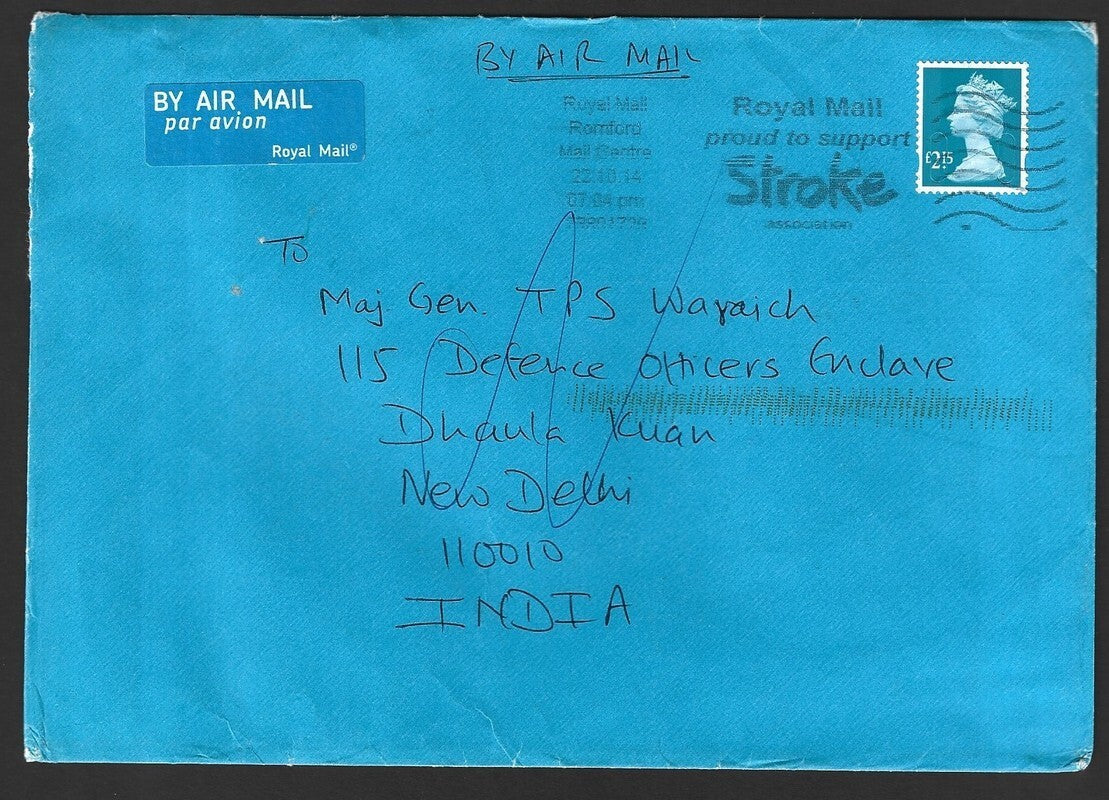 BY AIR MAIL
BY AIR MAIL
par avion
Royal Mail®
Royal Mail
Romford
Mail Centre
22.10.14
07:04 pm
Royal Mail
proud to support
Stroke
association
£2.15
To
Maj Gen. TPS Waraich
115 Defence Officers Enclave
Dhaula Kuan
New Delhi
110010
INDIA